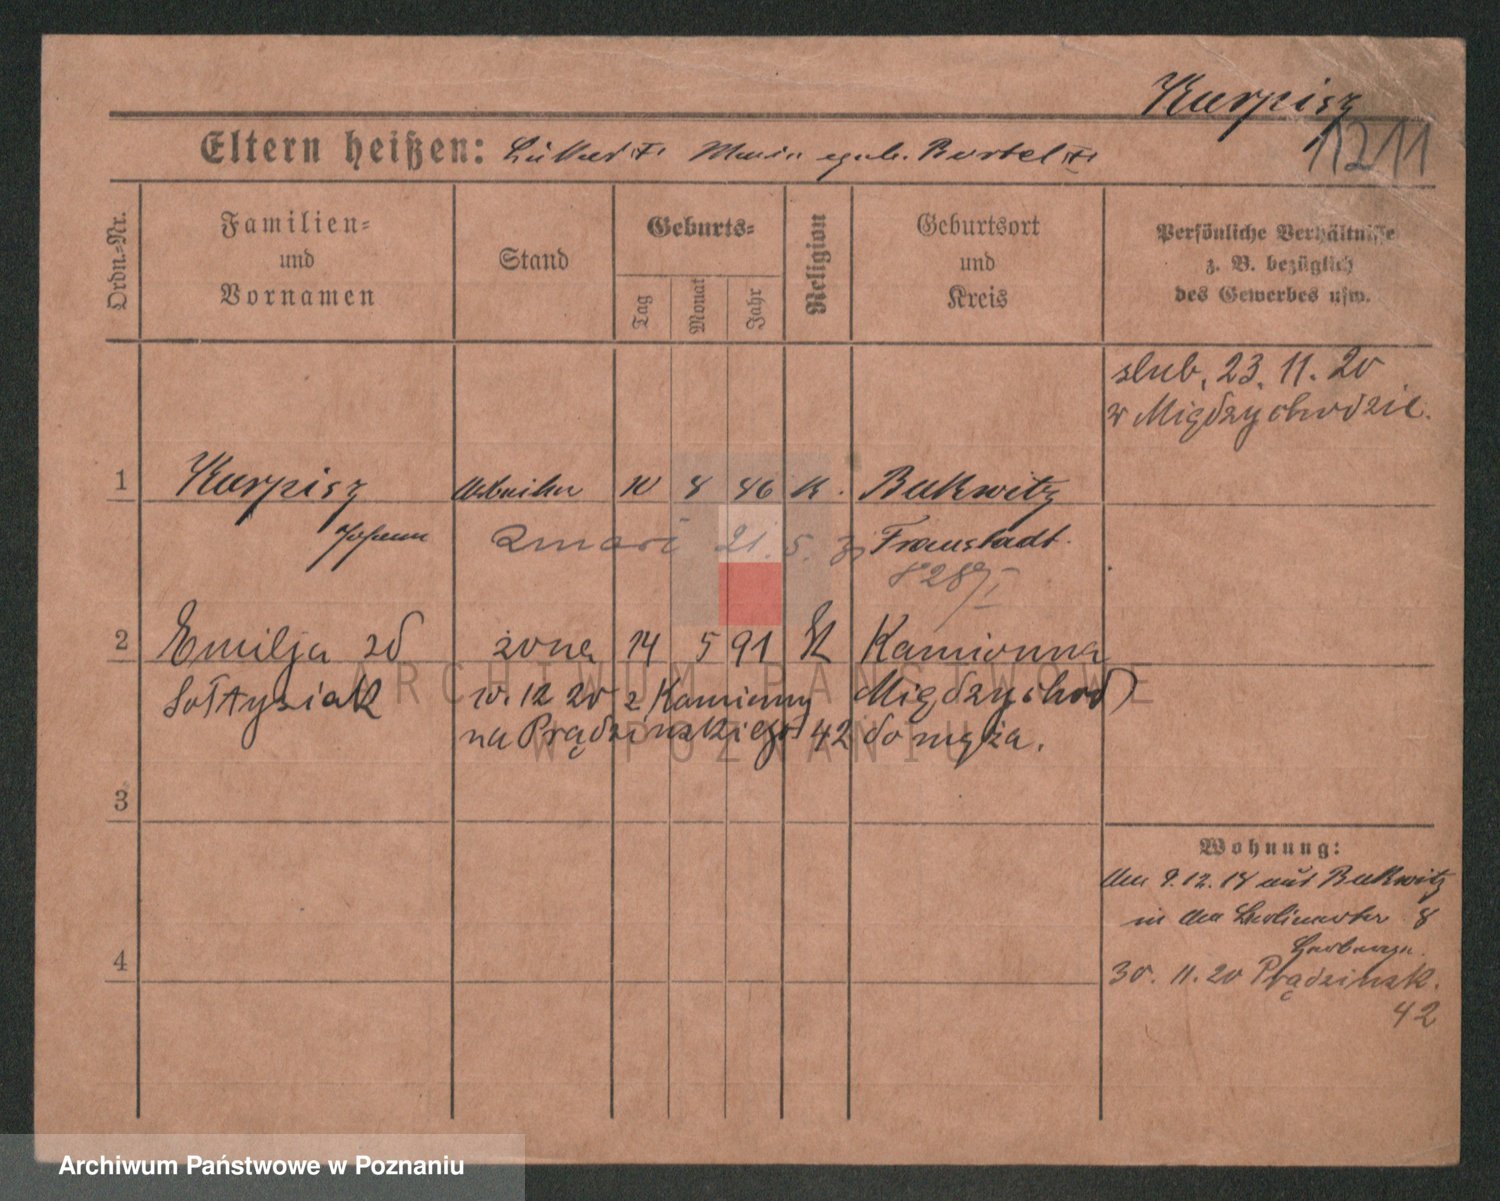 Kurpisz
1211
Eltern heißen: Maria geb. Bartel
Ordn.-Nr.
Familien-
und
Vornamen
Stand
Geburts-
Tag
Monat
Jahr
Religion
Geburtsort
und
Kreis
Persönliche Verhältnisse
z. B. bezüglich
des Gewerbes usw.
slub. 23. 11. 20
w Międzychodzie.
1 Kurpisz Arbeiter 10 8 86 k. Bukwitz
Johann zmarł 21. 5. Fraustadt.
2 Emilja zd żona 14 5 91 k Kamionna
Sołtysiak 10. 12 20 z Kamionny Międzychod
na Prądzinskiego 42 do męża.
3
4
Wohnung:
den 9. 12. 18 aus Bukwitz
in der 8
30. 11. 20 Prądzinsk.
42
ARCHIWUM PAŃSTWOWE
W POZNANIU
Archiwum Państwowe w Poznaniu